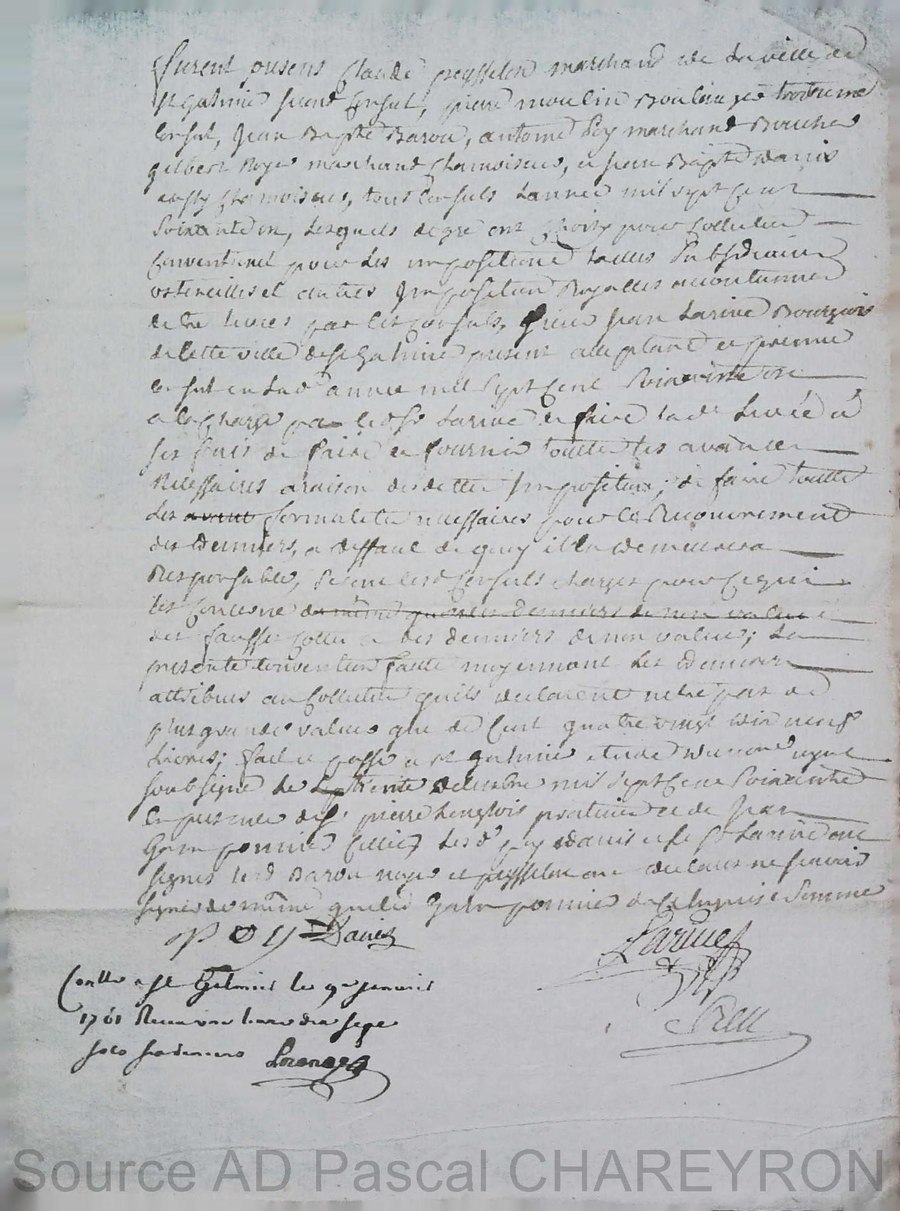 furent presens Claude peysselon marchand de la ville de
St Galmier second Consul, pierre moulin Boulanger troisieme
Consul, Jean Bapte Barou, antoine Poy marchand Boucher
gilbert Roye marchand Chamoiseur, et Jean Bapte danis
aussy Chamoiseur, tous Consuls lannée mil sept Cent
Soixante un, lesquels de gré ont Choisy pour Collecteur
Conventionel pour les impositions tailles Subsidiaires
ustencilles et autres Impositions Royalles accoutumées
detre livrées par les Consuls, Sieur Jean Larive Bourgeois
de Cette ville de St Galmier present acceptant et premier
Consul en lad. année mil Sept Cent Soixante un
a la Charge par led. Sr Larive de faire lad. Levée à
ses frais de faire et fournir toutes les avances
Necessaires a raison desdittes Impositions, de faire toutes
les avant formalités necessaires pour le Recouvrement
des Deniers, a deffaut de quoy il en demeurera
Responsable, lesd. Consuls chargés pour ce qui
les Concerne de même que des deniers de non value
des fausses Cottes et des deniers de non values; La
presente Convention faitte moyennant les deniers
attribués au Collecteur quils declarent netre pas de
plus grande valeur que de Cent quatre vingt dix neuf
Livres; fait et passé a St Galmier etude du notre royal
soubsigné le trente decembre mil Sept Cent Soixante
En presence de Sr pierre Langlois praticien et de Jean
ponnier Cellier Lesd. poy danis et le Sr Larive ont
signés lesd. Barou roye et peysselon ont declaré ne scavoir
signer de même que led. ponnier de Ce Enquis et Sommé
POY Danis
Larive
Contlé a St Galmier le 9e janvier
1761 Receu une livre dix sept
sols six deniers
Source AD Pascal CHAREYRON